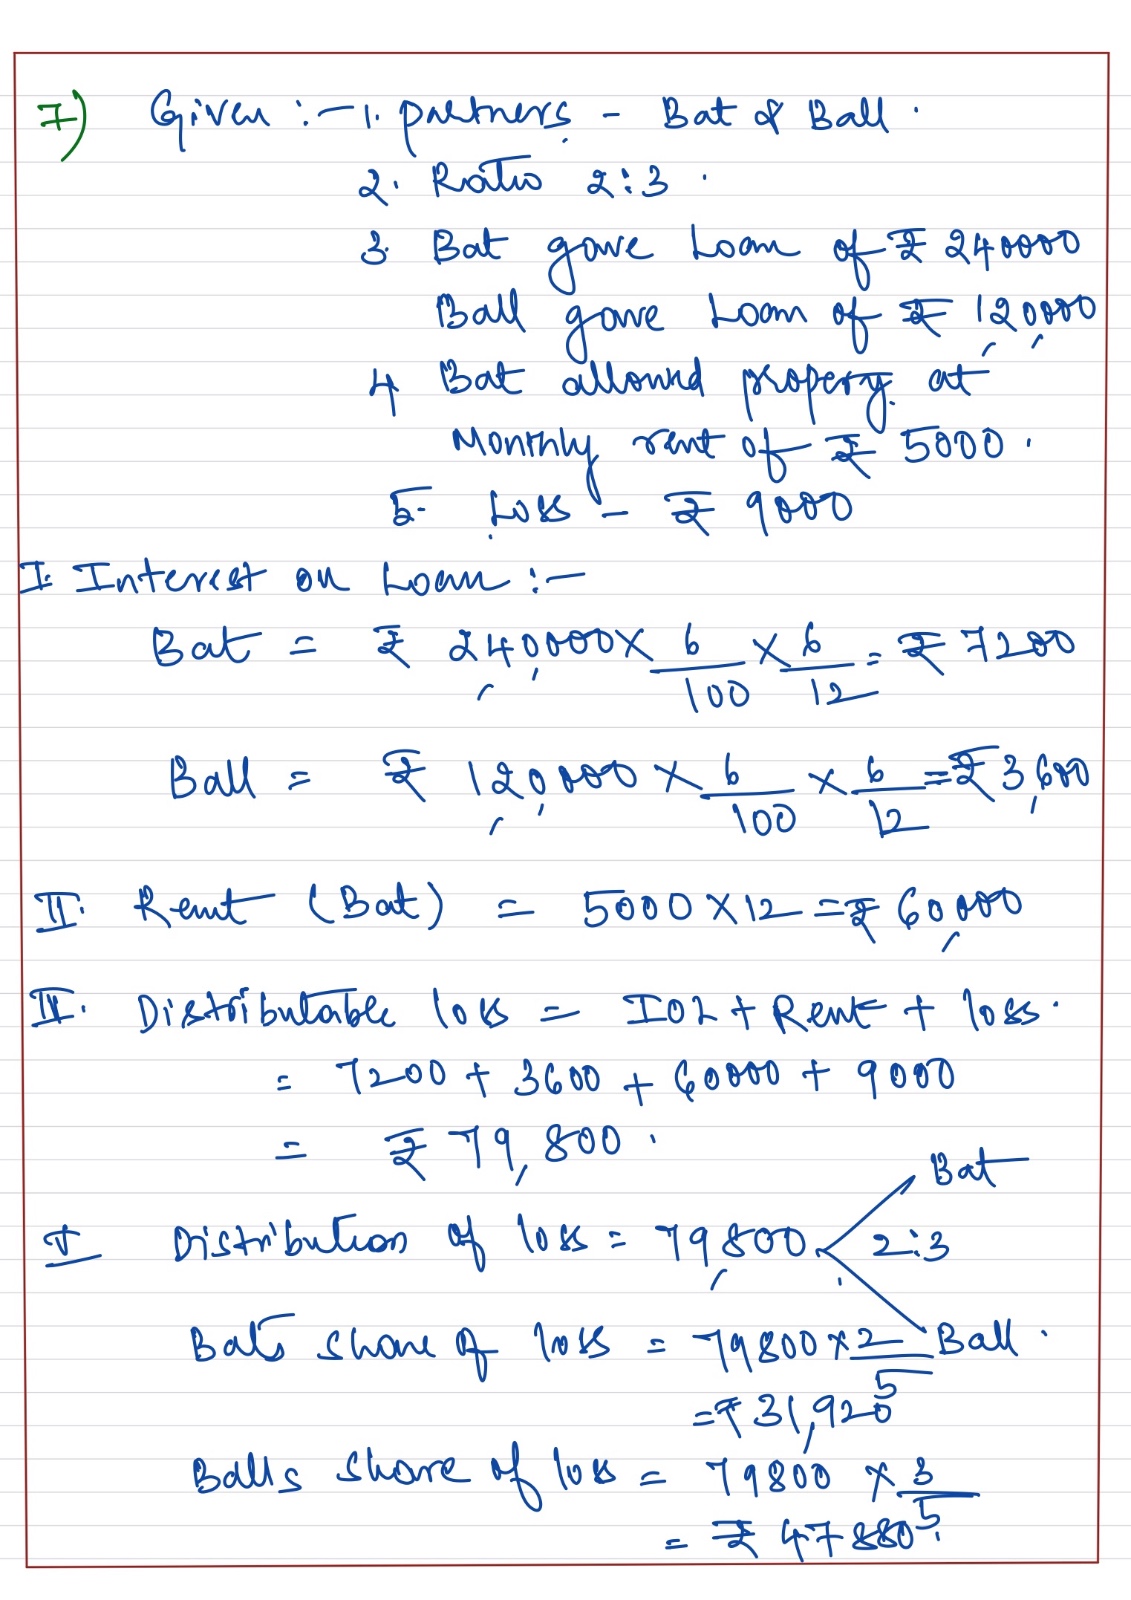 7) Given :- 1. partners - Bat & Ball.
2. Ratio 2:3.
3. Bat gave Loan of ₹ 240000
Ball gave Loan of ₹ 120000
4 Bat allowed property at
Monthly rent of ₹ 5000.
5- Loss - ₹ 9000
I. Interest on Loan :-
Bat = ₹ 240,000 × 6/100 × 6/12 = ₹ 7200
Ball = ₹ 120,000 × 6/100 × 6/12 = ₹ 3,600
II. Rent (Bat) = 5000 × 12 = ₹ 60,000
IV. Distributable loss = IOL + Rent + loss.
= 7200 + 3600 + 60000 + 9000
= ₹ 79,800.
Bat
V Distribution of loss = 79,800 2:3
Ball.
Bats share of loss = 79800 × 2/5
= ₹ 31,920
Balls share of loss = 79800 × 3/5
= ₹ 47880.